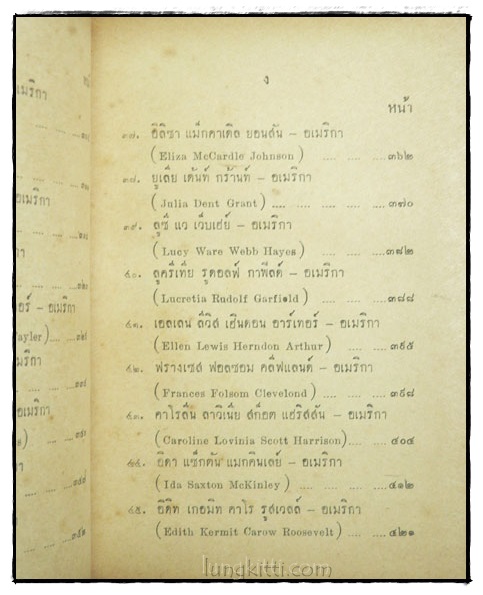 ง
หน้า
๓๗. อีลิซา แม็กคาเดิล ยอนสัน – อเมริกา
(Eliza McCardle Johnson) .... .... ....๓๖๒
๓๘. ยูเลีย เด้นท์ กร๊านท์ – อเมริกา
(Julia Dent Grant) .... .... ....๓๗๐
๓๙. ลูซี่ แว เว็บเฮย์ – อเมริกา
(Lucy Ware Webb Hayes) .... ....๓๘๒
๔๐. ลูครีเทีย รูดอลฟ์ กาฟิลด์ – อเมริกา
(Lucretia Rudolf Garfield) .... ....๓๘๘
๔๑. เอลเลน ลีวิส เฮินดอน อาร์เทอร์ – อเมริกา
(Ellen Lewis Herndon Arthur) .... ....๓๙๕
๔๒. ฟรางเซส ฟอลซอม คลีฟแลนด์ – อเมริกา
(Frances Folsom Clevelond) .... ....๓๙๘
๔๓. คาโรลีน ลาวิเนีย สก็อต แฮริสสัน – อเมริกา
(Caroline Lovinia Scott Harrison).... ....๔๐๔
๔๔. อิดา แซ็กตัน แมกคินเลย์ – อเมริกา
(Ida Saxton McKinley) .... .... ....๔๑๒
๔๕. อีดิท เกอมิท คาโร รูสเวลล์ – อเมริกา
(Edith Kermit Carow Roosevelt) .... ....๔๒๑
lungkitti.com